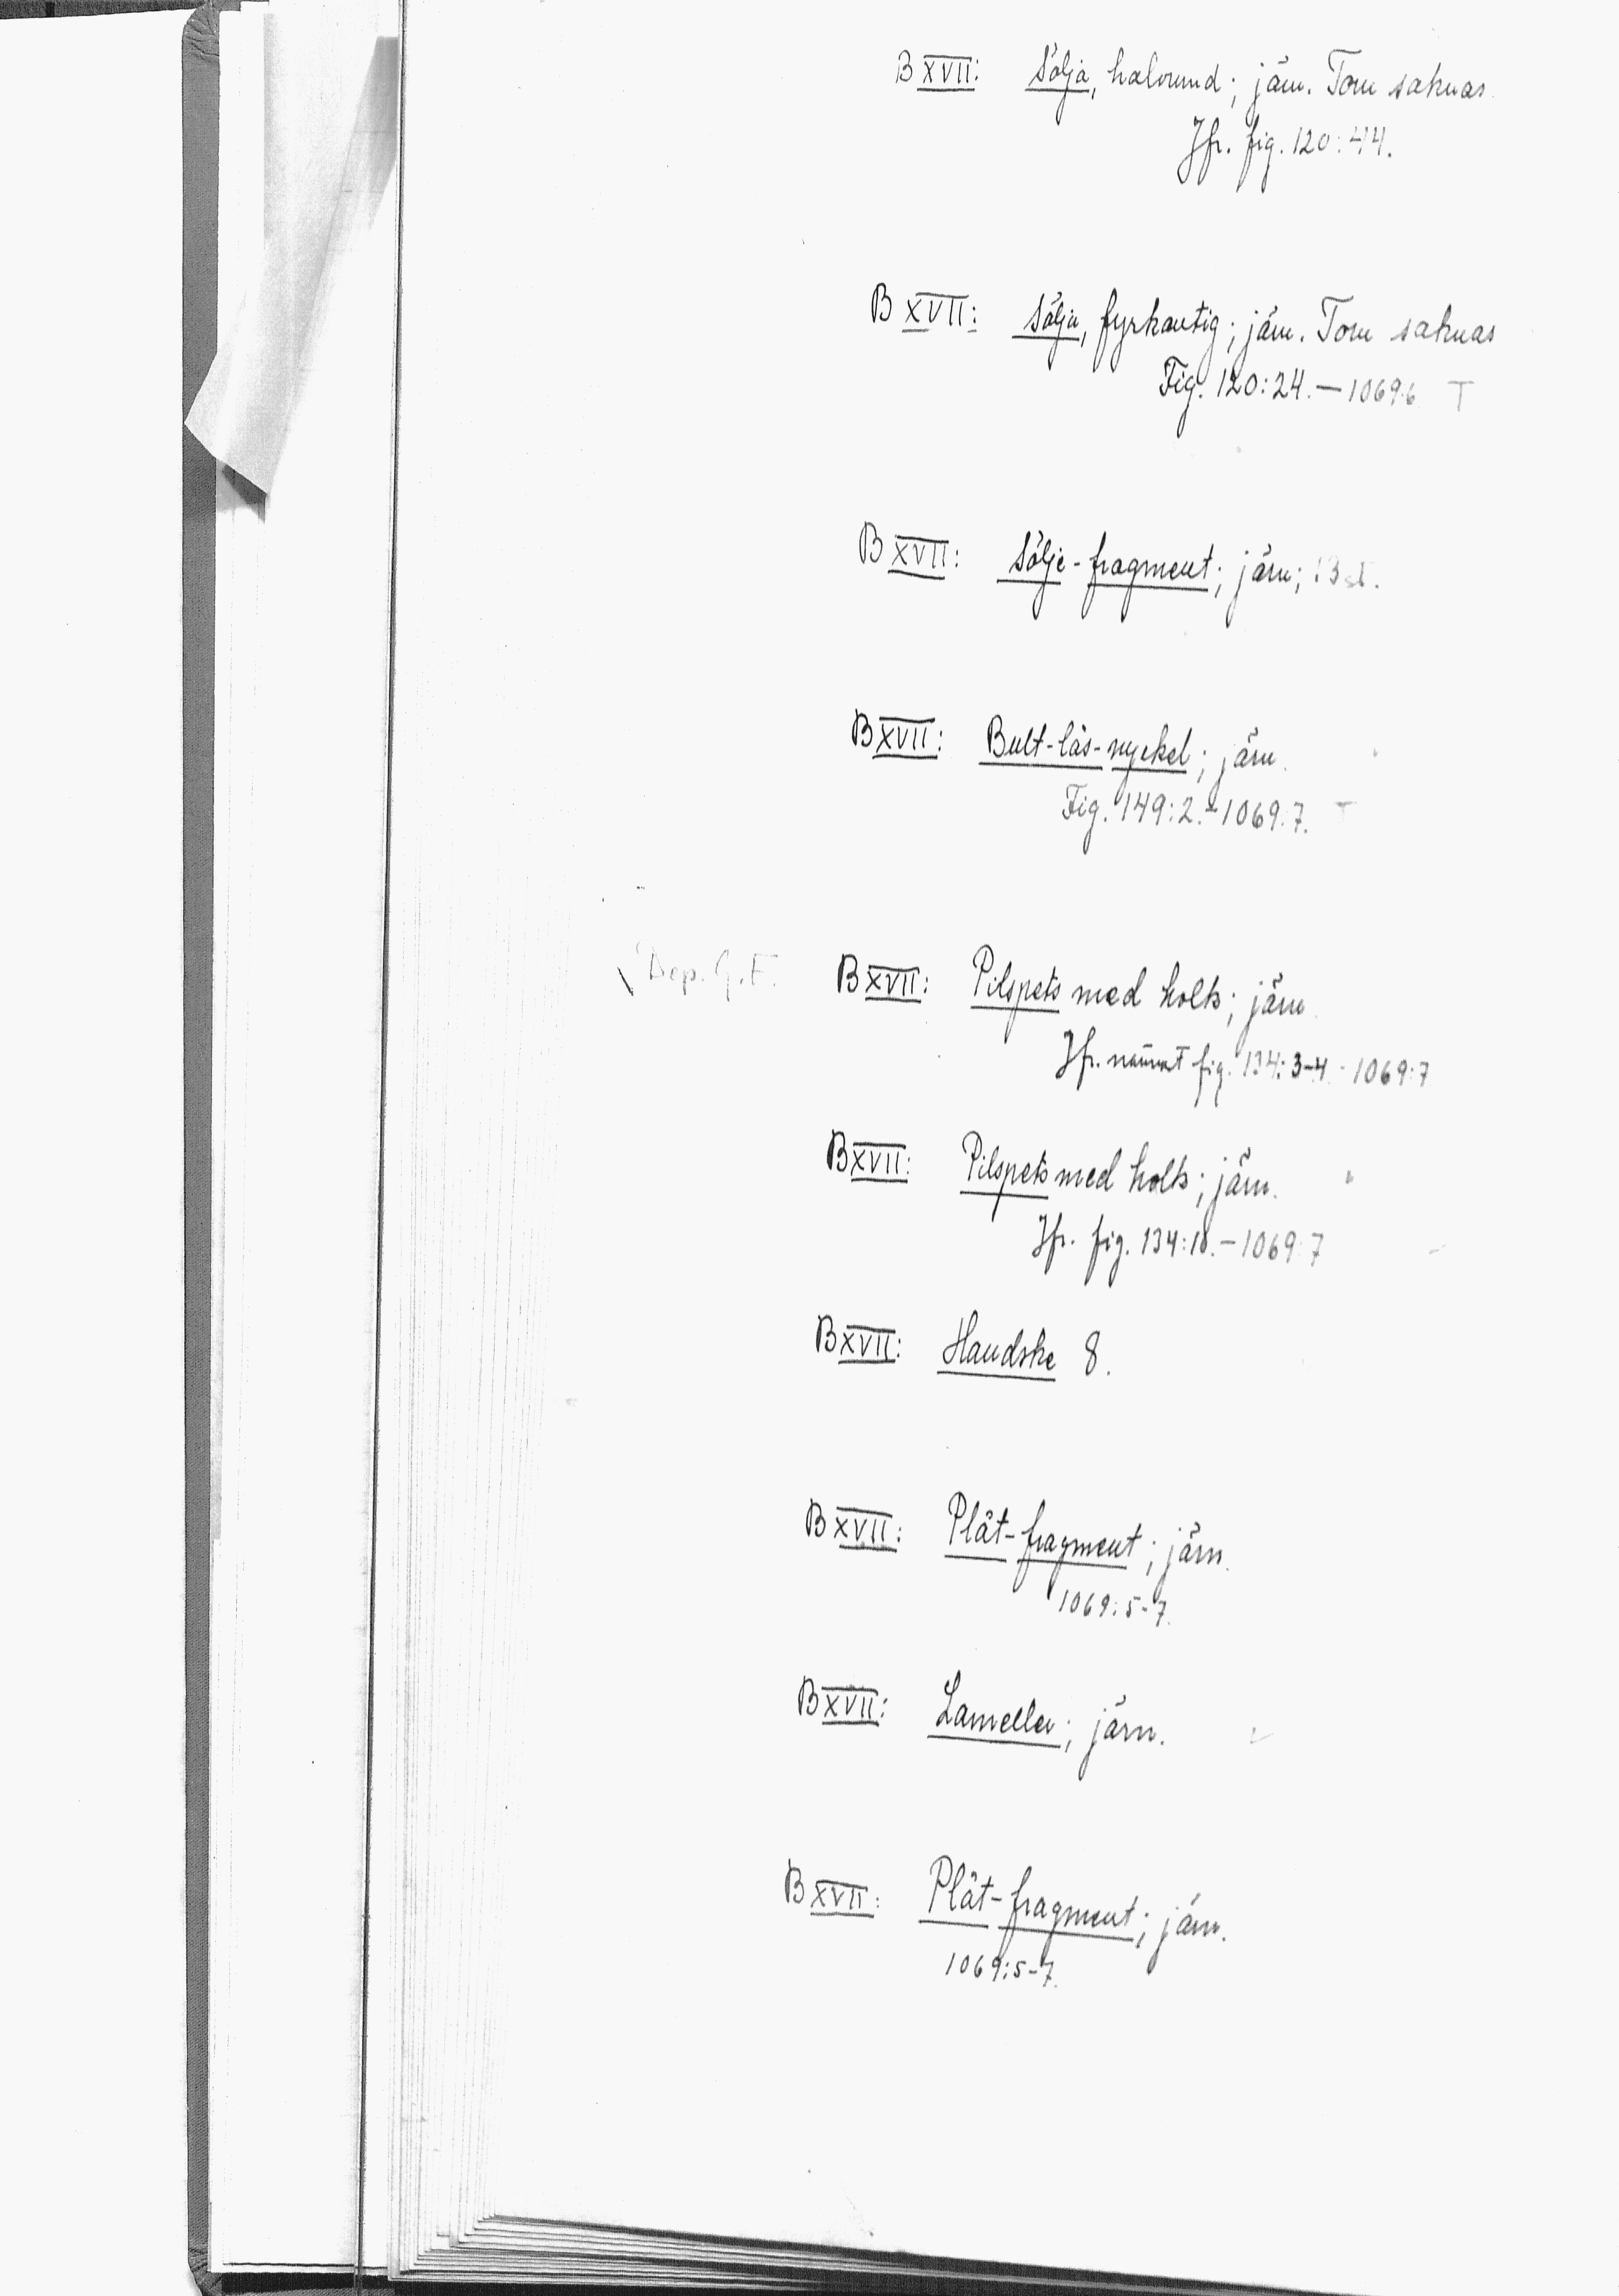 B XVII: Sölja, halvrund; järn. Torn saknas.
Jfr. fig. 120:44.
B XVII: Sölja, fyrkantig; järn. Torn saknas
Fig. 120:24. — 1069:6 T
B XVII: Sölje-fragment; järn; 13 st.
B XVII: Bult-lås-nyckel; järn.
Fig. 149:2. - 1069:7.
Dep. G.F. B XVII: Pilspets med holk; järn.
Jfr. närmast fig. 134:3-4 - 1069:7
B XVII: Pilspets med holk; järn.
Jfr. fig. 134:10. - 1069:7
B XVII: Handske 8.
B XVII: Plåt-fragment; järn.
1069:5-7.
B XVII: Lameller; järn.
B XVII: Plåt-fragment; järn.
1069:5-7.